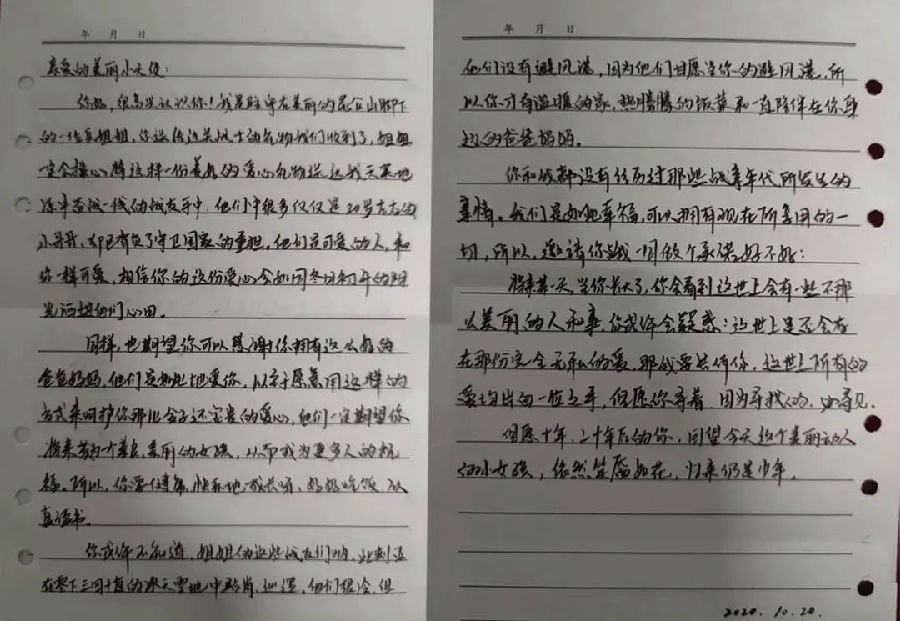 年 月 日
亲爱的美丽小天使：
你好，很高兴认识你！我是驻守在美丽的昆仑山脚下
的一位兵姐姐，你送给边关战士的礼物我们收到了，姐姐
一定会精心将这样一份美好的爱心礼物送达我天寒地
冻半奋战一线的战友手中，他们中很多仅仅是20岁左右的
小哥哥，却已肩负了守卫国家的重担，他们是可爱的人，和
你一样可爱，相信你的这份爱心会如同冬日和开的阳
光洒想他们心田。
同样，也期望你可以感谢你拥有这么好的
爸爸妈妈，他们是如此地爱你，以至于愿意用这样的
方式来呵护你那比金子还宝贵的爱心，他们一定期望你
将来 善良、美丽的女孩，从而成为更多人的榜
样。所以，你要健康、快乐地成长呀，好好吃饭，认
真读书。
你或许不知道，姐姐的这些战友们呐，此刻正
在零下三四十度的冰天雪地中站岗、巡逻，他们很冷，但
年 月 日
他们没有避风港，因为他们甘愿当你的避风港，所
以你才有温暖的家，热腾腾的饭菜和一直陪伴在你身
边的爸爸妈妈。
你和我都没有经历过那些战争年代所发生的
事情。我们是如此幸福，可以拥有现在所享用的一
切，所以，邀请你与我一同做个承诺好不好：
将来某一天，当你长大了，你会看到这世上会有一些不那
么美丽的人和事，你或许会疑惑：这世上是否会存
在那份完全无私的爱，那我要告诉你，这世上所有的
爱均出自一位之手，但愿你寻着，因为寻找的，必寻见。
但愿十年、二十年后的你，回望今天这个美丽动人
的小女孩，依然笑靥如花，归来仍是少年。
2020.10.20.